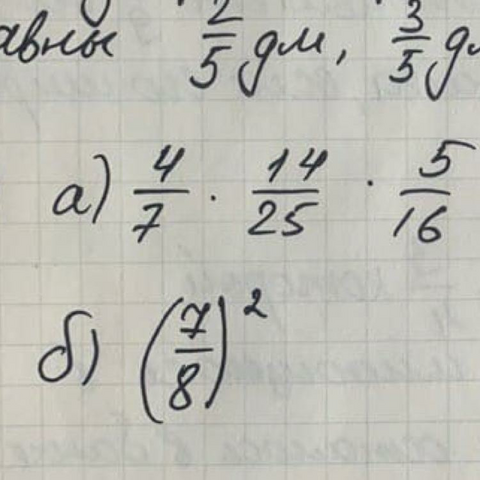 авны 2/5 дм, 3/5 д
а) 4/7 · 14/25 · 5/16
б) (7/8)²